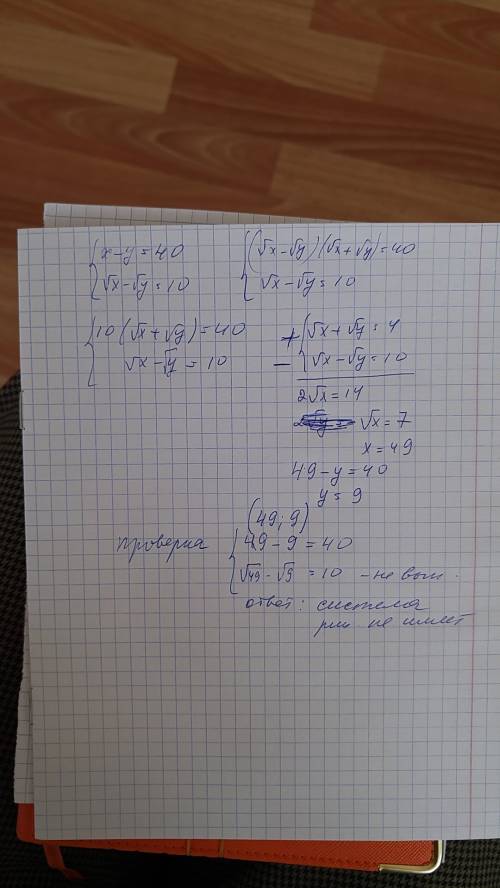 x-y=40
√x-√y=10
(√x-√y)(√x+√y)=40
√x-√y=10
10(√x+√y)=40
√x-√y=10
+ √x+√y=4
- √x-√y=10
2√x=14
√x=7
x=49
49-y=40
y=9
(49; 9)
проверка 49-9=40
√49-√9=10 - не вып.
ответ: система
реш не имеет